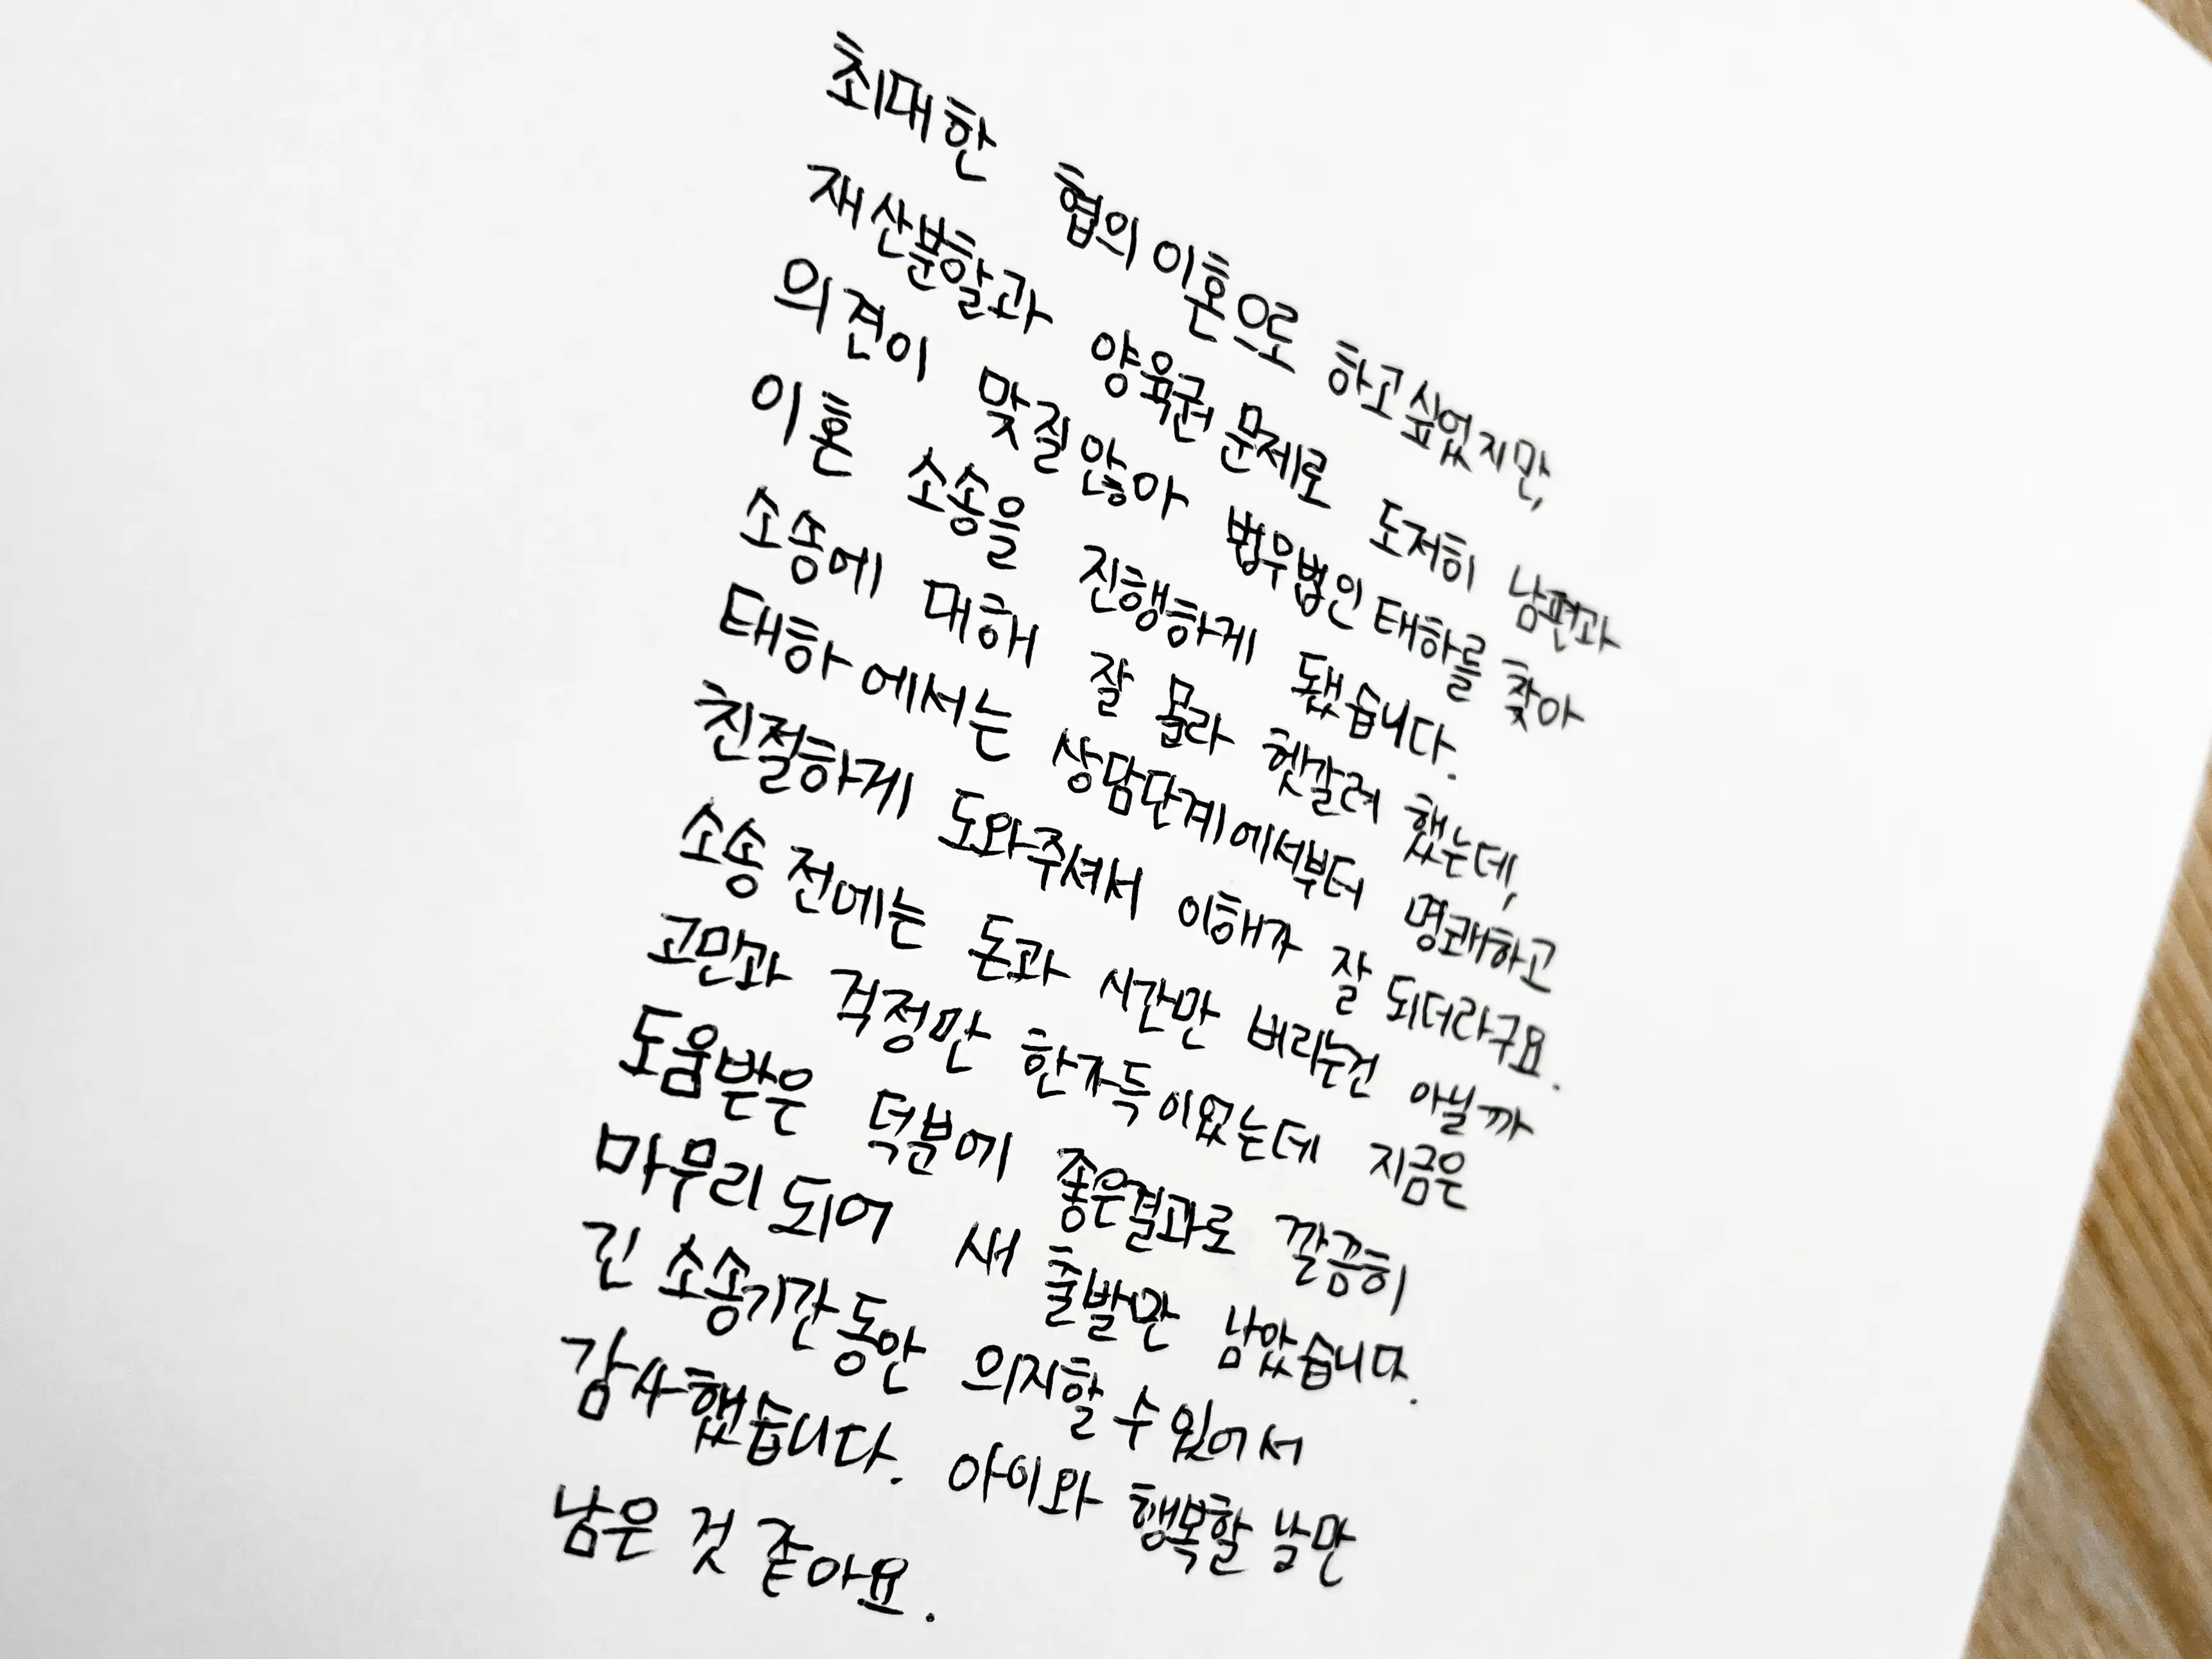 최대한 협의 이혼으로 하고싶었지만,
재산분할과 양육권 문제로 도저히 남편과
의견이 맞질 않아 법무법인 태하를 찾아
이혼 소송을 진행하게 됐습니다.
소송에 대해 잘 몰라 헷갈려 했는데,
태하에서는 상담단계에서부터 명쾌하고
친절하게 도와주셔서 이해가 잘 되더라구요.
소송 전에는 돈과 시간만 버리는건 아닐까
고민과 걱정만 한가득이었는데 지금은
도움받은 덕분에 좋은결과로 깔끔히
마무리 되어 새 출발만 남았습니다.
긴 소송기간 동안 의지할 수 있어서
감사했습니다. 아이와 행복할 날만
남은 것 같아요.